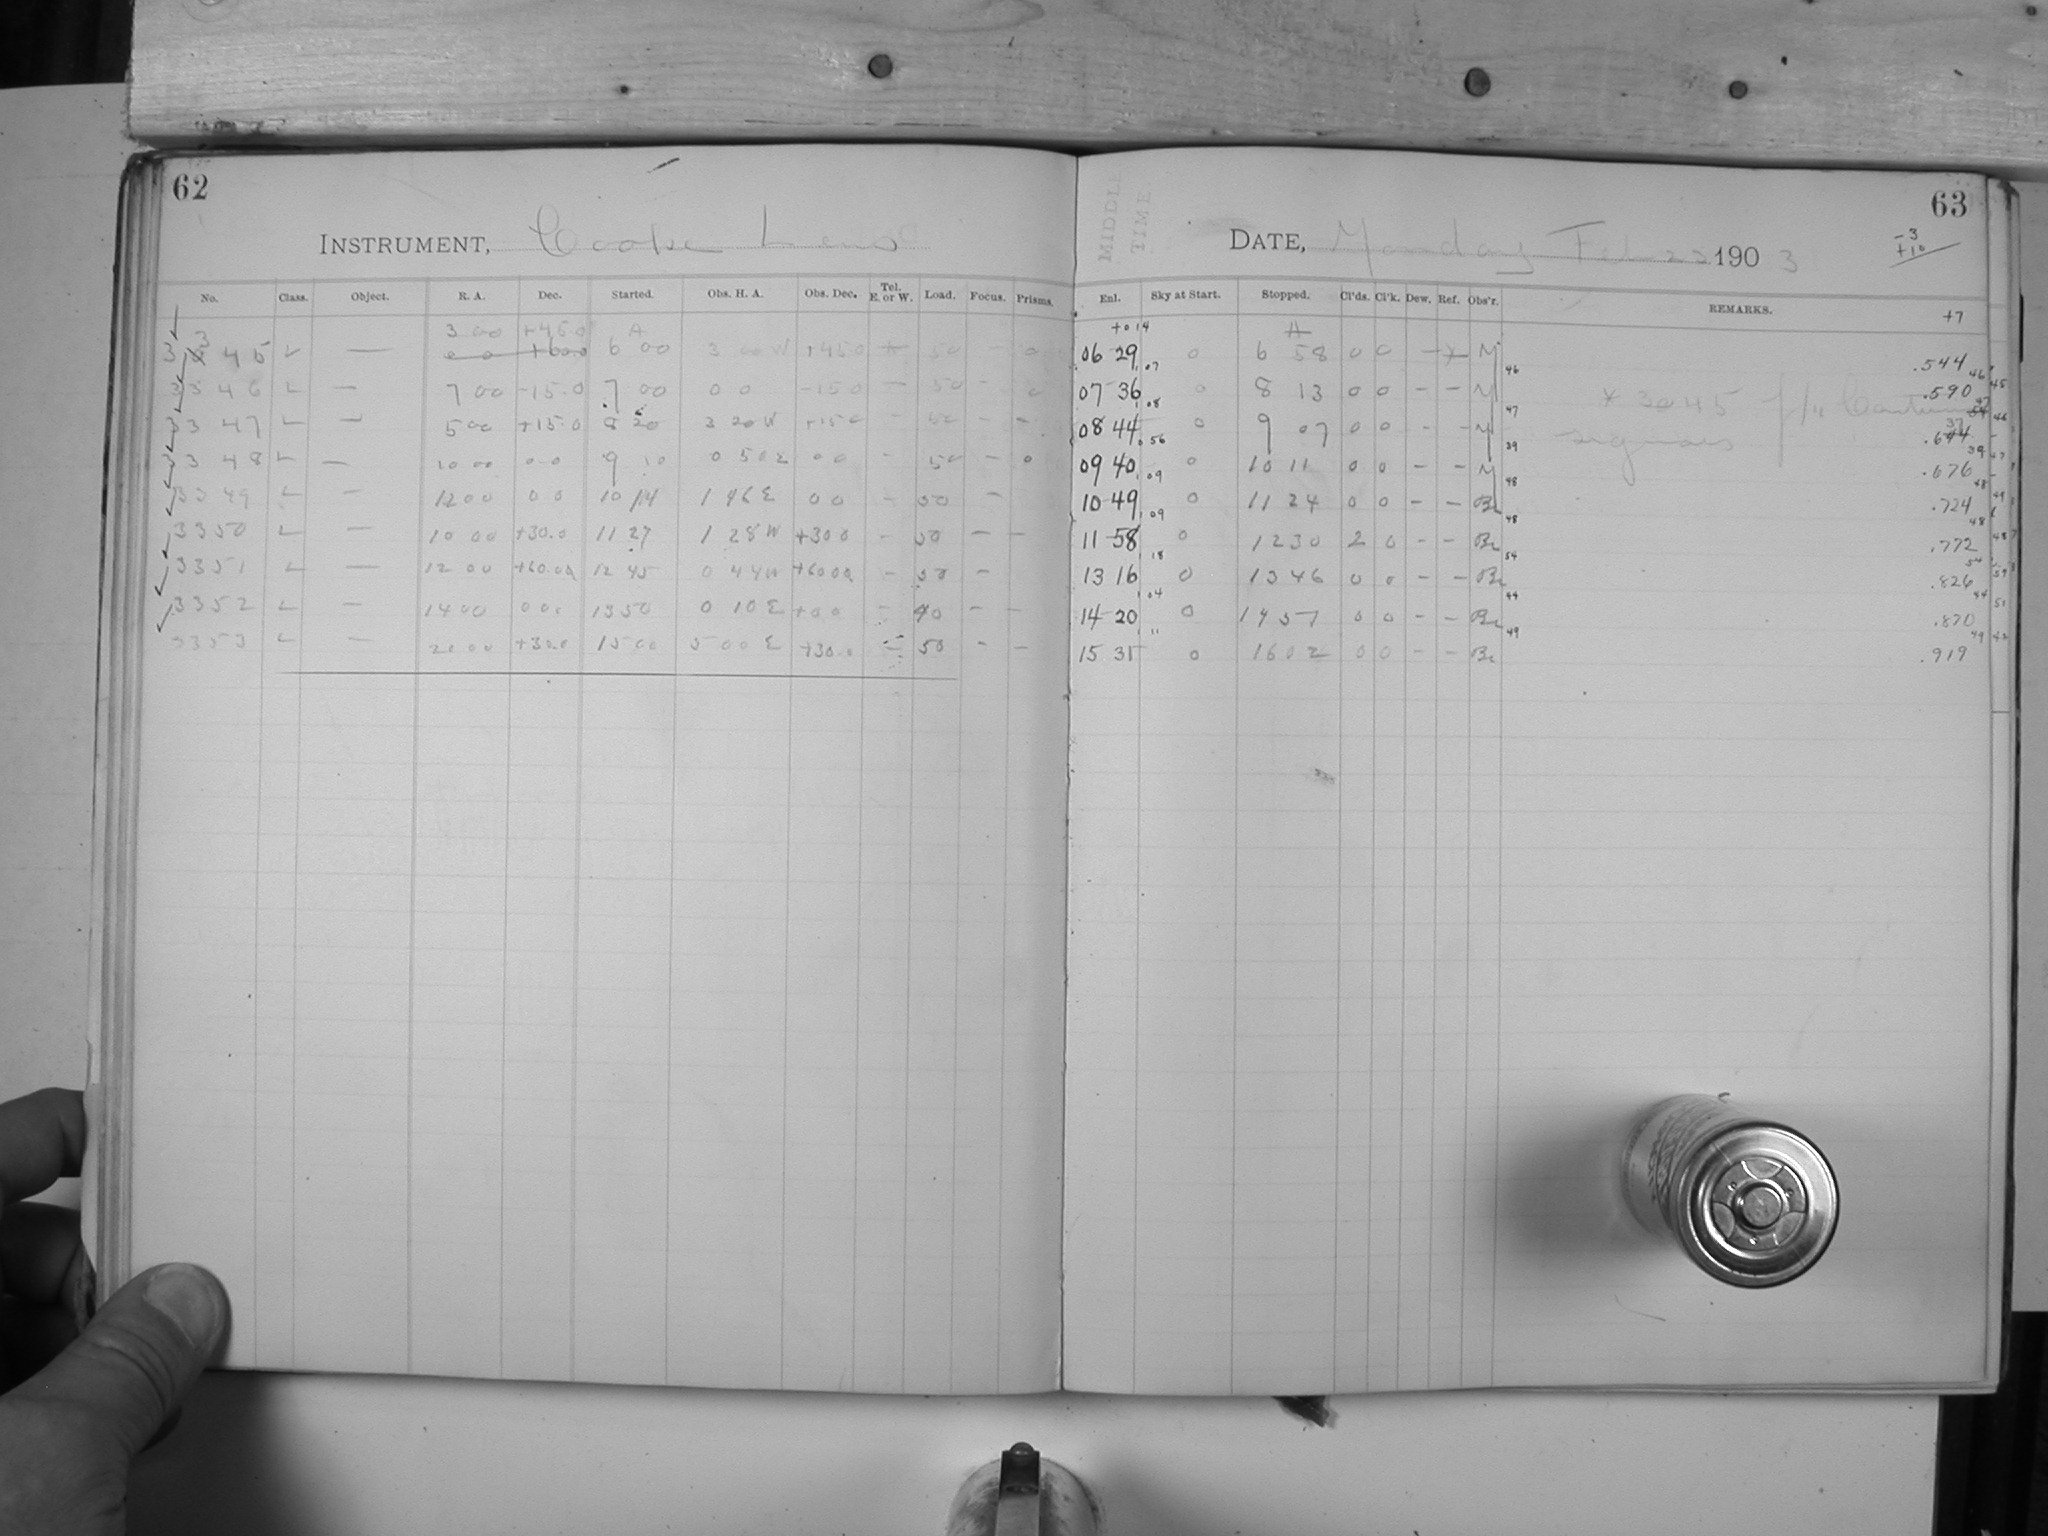 62
INSTRUMENT, Cooke Lens
No. Class. Object. R. A. Dec. Started. Obs. H. A. Obs. Dec. Tel. E. or W. Load. Focus. Prisms.
3 00 +45.0 A
3345 L — 6 00 3 00 W +45.0 50 0
3346 L — 7 00 -15.0 7 00 0 0 -15.0 — 50 - 0
3347 L — 5 00 +15.0 8 20 3 20 W +15.0 50 - -
3348 L — 10 00 0 0 9 10 0 50 E 0 0 - 50 - 0
3349 L — 12 00 0 0 10 14 1 46 E 0 0 - 50 -
3350 L — 10 00 +30.0 11 27 1 28 W +30 0 - 50 - -
3351 L — 12 00 +60.0 12 45 0 44 W +60.0 - 50 -
3352 L — 14 00 0 0 13 50 0 10 E +0 0 - 40 - -
3353 L — 20 00 +30.0 15 00 5 00 E +30.0 - 50 - -
63
-3
+10
MIDDLE
TIME
DATE, Monday Feb 23 1903
Enl. Sky at Start. Stopped. Cl'ds. Cl'k. Dew. Ref. Obs'r. REMARKS. +7
+014 A
06 29 0 6 58 0 0 - M .544
07 36 0 8 13 0 0 - - M * 3045 .590
08 44 0 9 07 0 0 - - M
09 40 0 10 11 0 0 - - M .676
10 49 0 11 24 0 0 - - Br .724
11 58 0 12 30 2 0 - - Br .772
13 16 0 13 46 0 0 - - Br .826
14 20 0 14 57 0 0 - - Br .870
15 31 0 16 02 0 0 - - Br .919